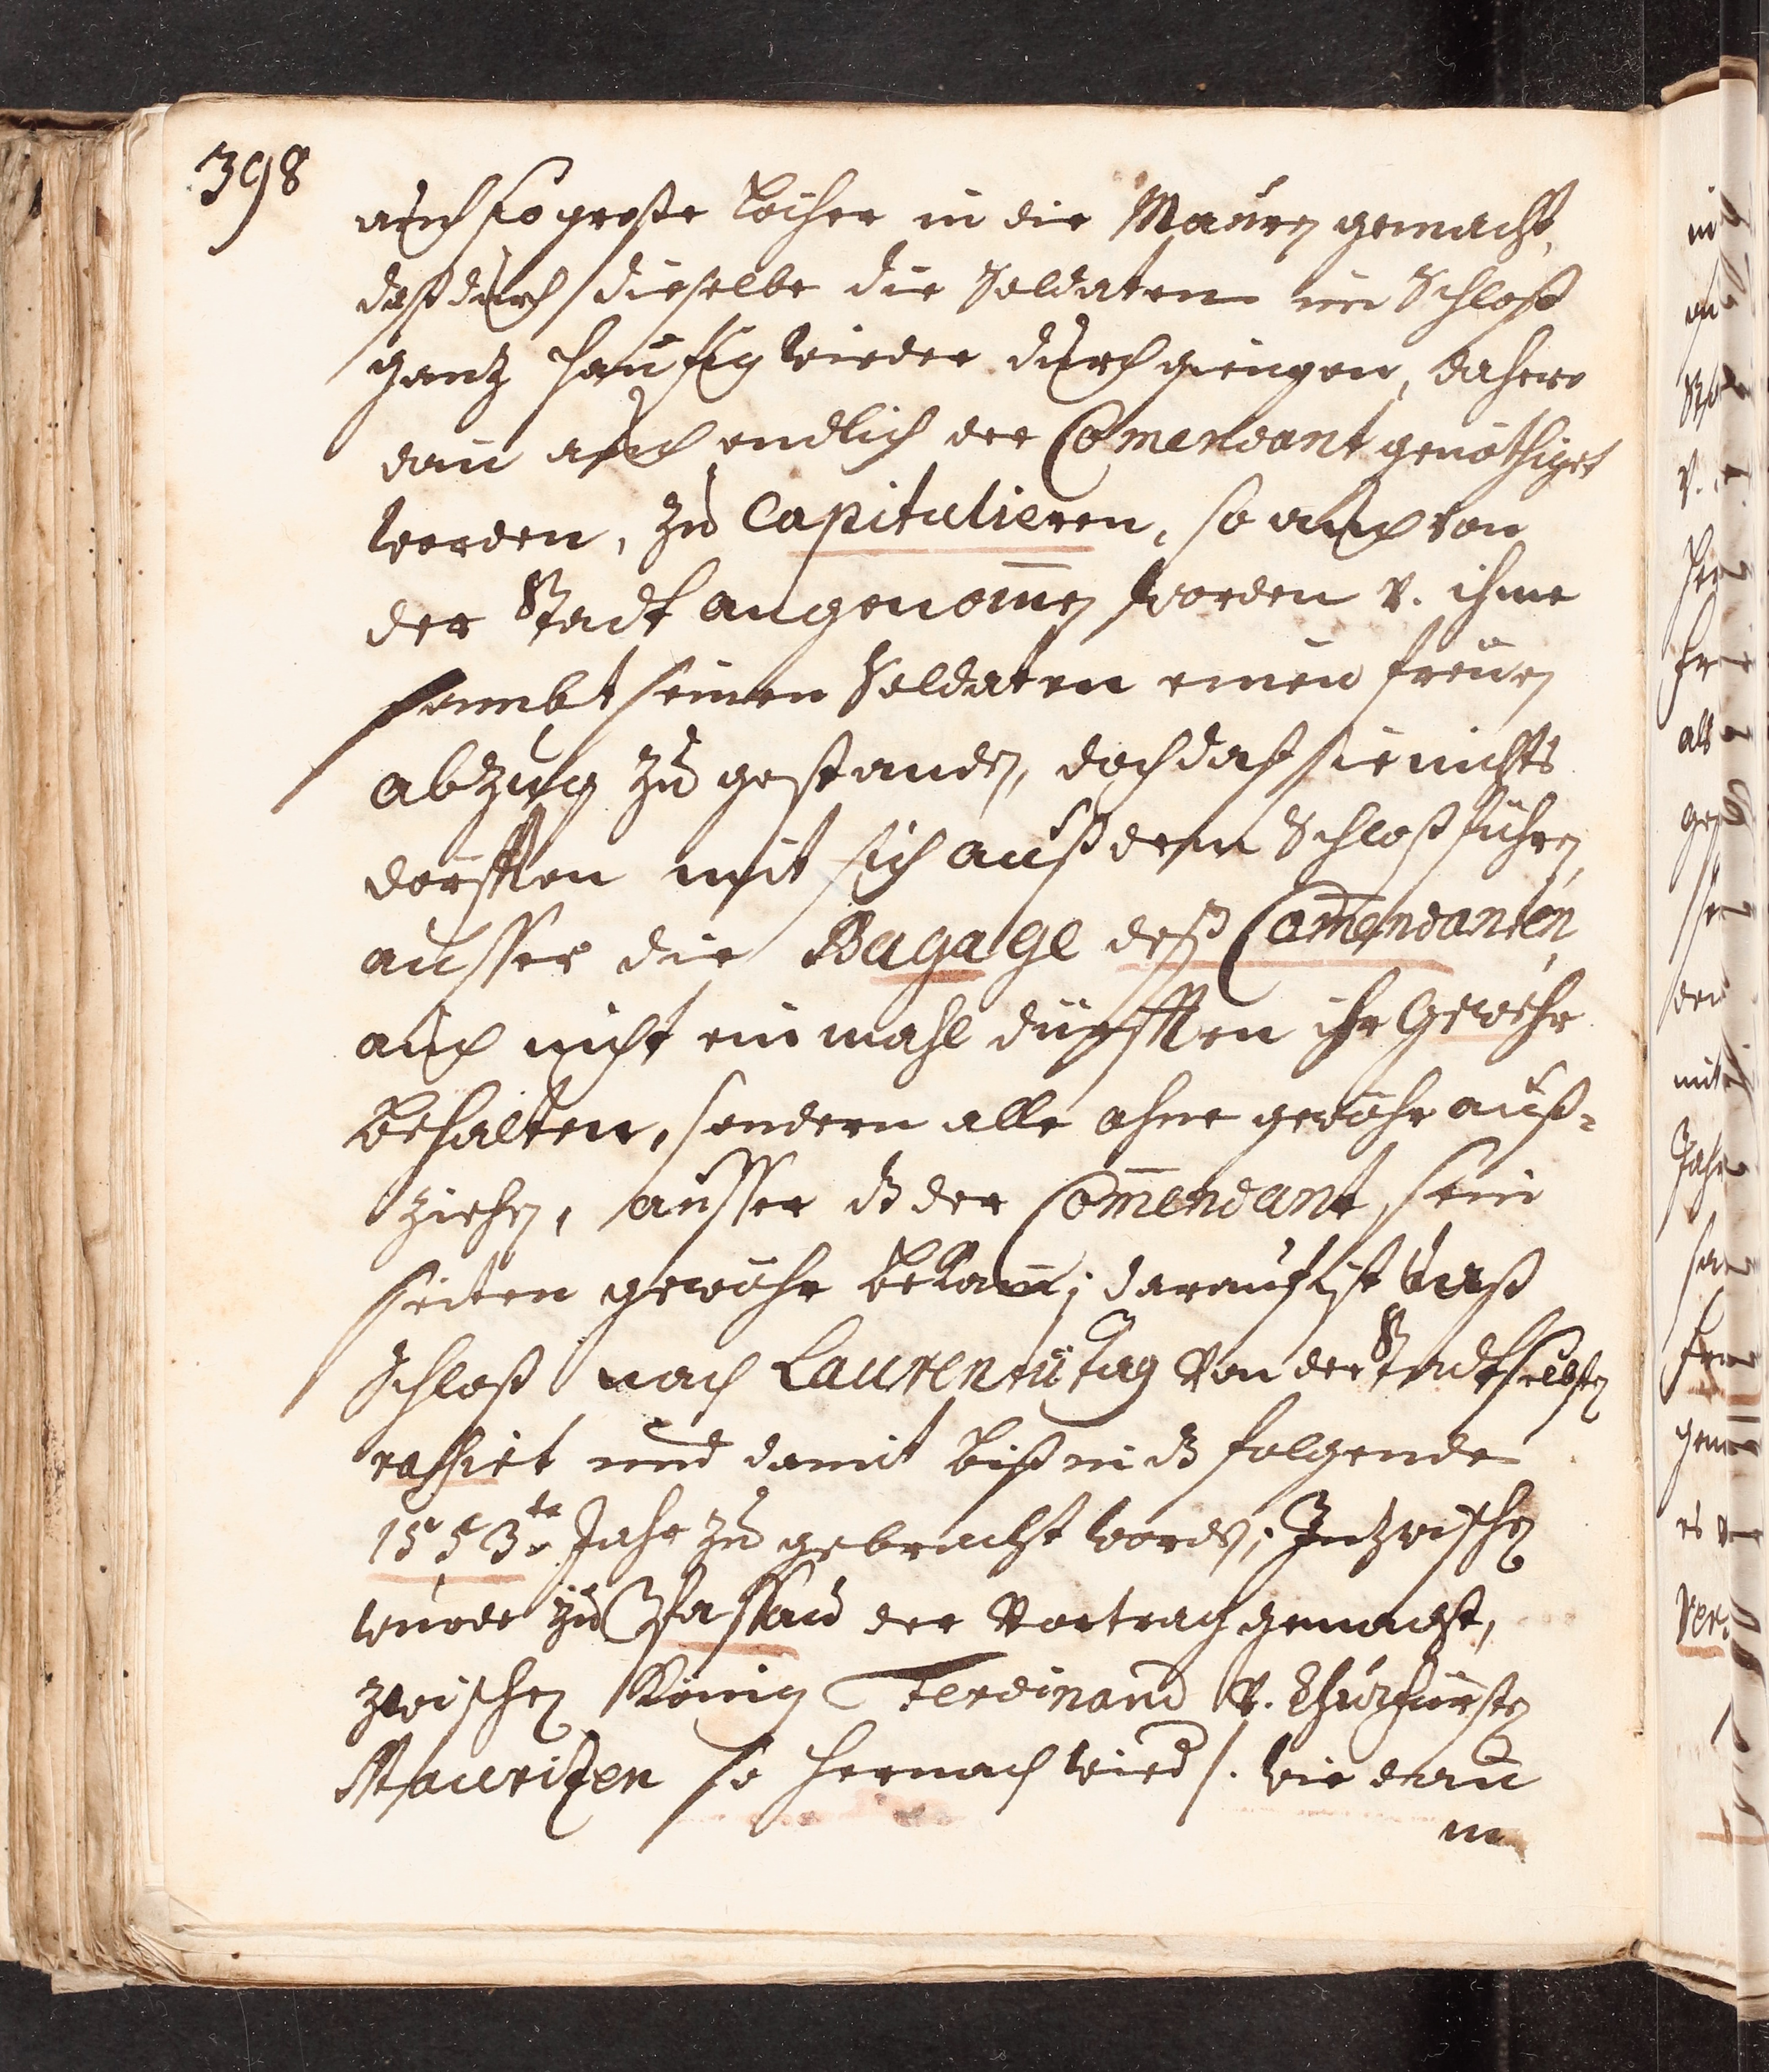 398
auch so große löcher in die Mauren gemacht,
daß durch dieselbe die Soldaten im Schloß
gantz hauffig wieder durchgiengen, dahero
dan̄ auch endlich der Com̄endant genöthiget
worden, zu Capitulieren, so auch von
der Stadt angenom̄en worden v. ihme
sambt seinen Soldaten einen freüen
abzug zu gestanden, doch daß sie nichts
dörfften mit sich auß dem Schloß führen,
ausser die Bagage deß Com̄endanten,
auch nicht ein mahl dürfften ihr Gewöhr
behalten, sondern alle ohne gewöhr auß-
ziehen, ausser dz der Com̄endant, sein
seiten gewöhr bekam; darauf ist daß
Schloß nach Laurentii tag von der Stadt selbsten
rassiert und damit biß in dz folgende
1553.te Jahr zu gebracht worden; Inzwischen
wurde zu Passau der Vertrag gemacht,
zwischen König Ferdinand v. Churfürsten
Mauritzen so hernach wird /. wie dann
in